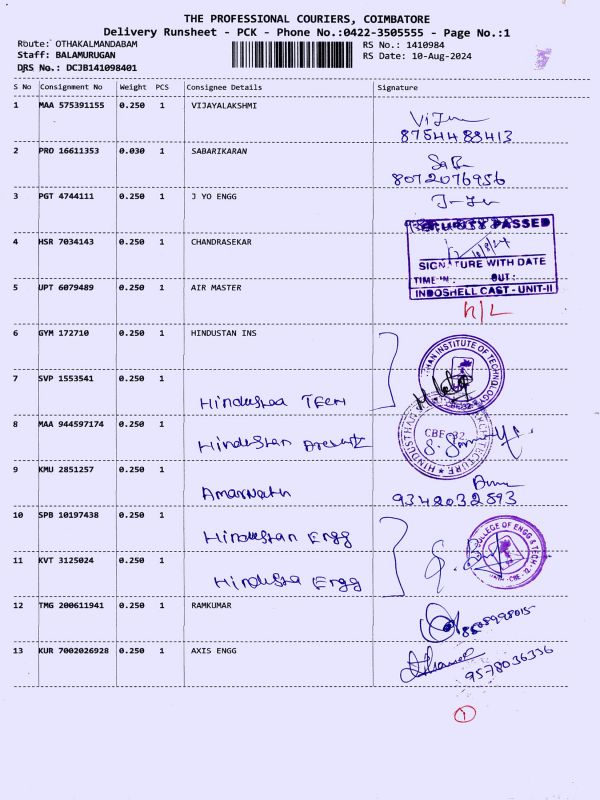 THE PROFESSIONAL COURIERS, COIMBATORE
Delivery Runsheet - PCK - Phone No.:0422-3505555 - Page No.:1
Route: OTHAKALMANDABAM
RS No.: 1410984
Staff: BALAMURUGAN
RS Date: 10-Aug-2024
DRS No.: DCJB141098401
S No Consignment No Weight PCS Consignee Details Signature
1 MAA 575391155 0.250 1 VIJAYALAKSHMI
8754488413
2 PRO 16611353 0.030 1 SABARIKARAN
8072076956
3 PGT 4744111 0.250 1 J YO ENGG
PASSED
4 HSR 7034143 0.250 1 CHANDRASEKAR
SIGNATURE WITH DATE
TIME IN: OUT:
5 UPT 6079489 0.250 1 AIR MASTER
INDOSHELL CAST - UNIT-II
N/L
6 GYM 172710 0.250 1 HINDUSTAN INS
INSTITUTE OF TECHNOLOGY
7 SVP 1553541 0.250 1
8 MAA 944597174 0.250 1
CBE-32
Hindustan
9 KMU 2851257 0.250 1
Amarnath
9342032893
10 SPB 10197438 0.250 1
Hindustan Engg
COLLEGE OF ENGG & TECH
11 KVT 3125024 0.250 1
Hindusta Engg
12 TMG 200611941 0.250 1 RAMKUMAR
13 KUR 7002026928 0.250 1 AXIS ENGG
9578036336
1